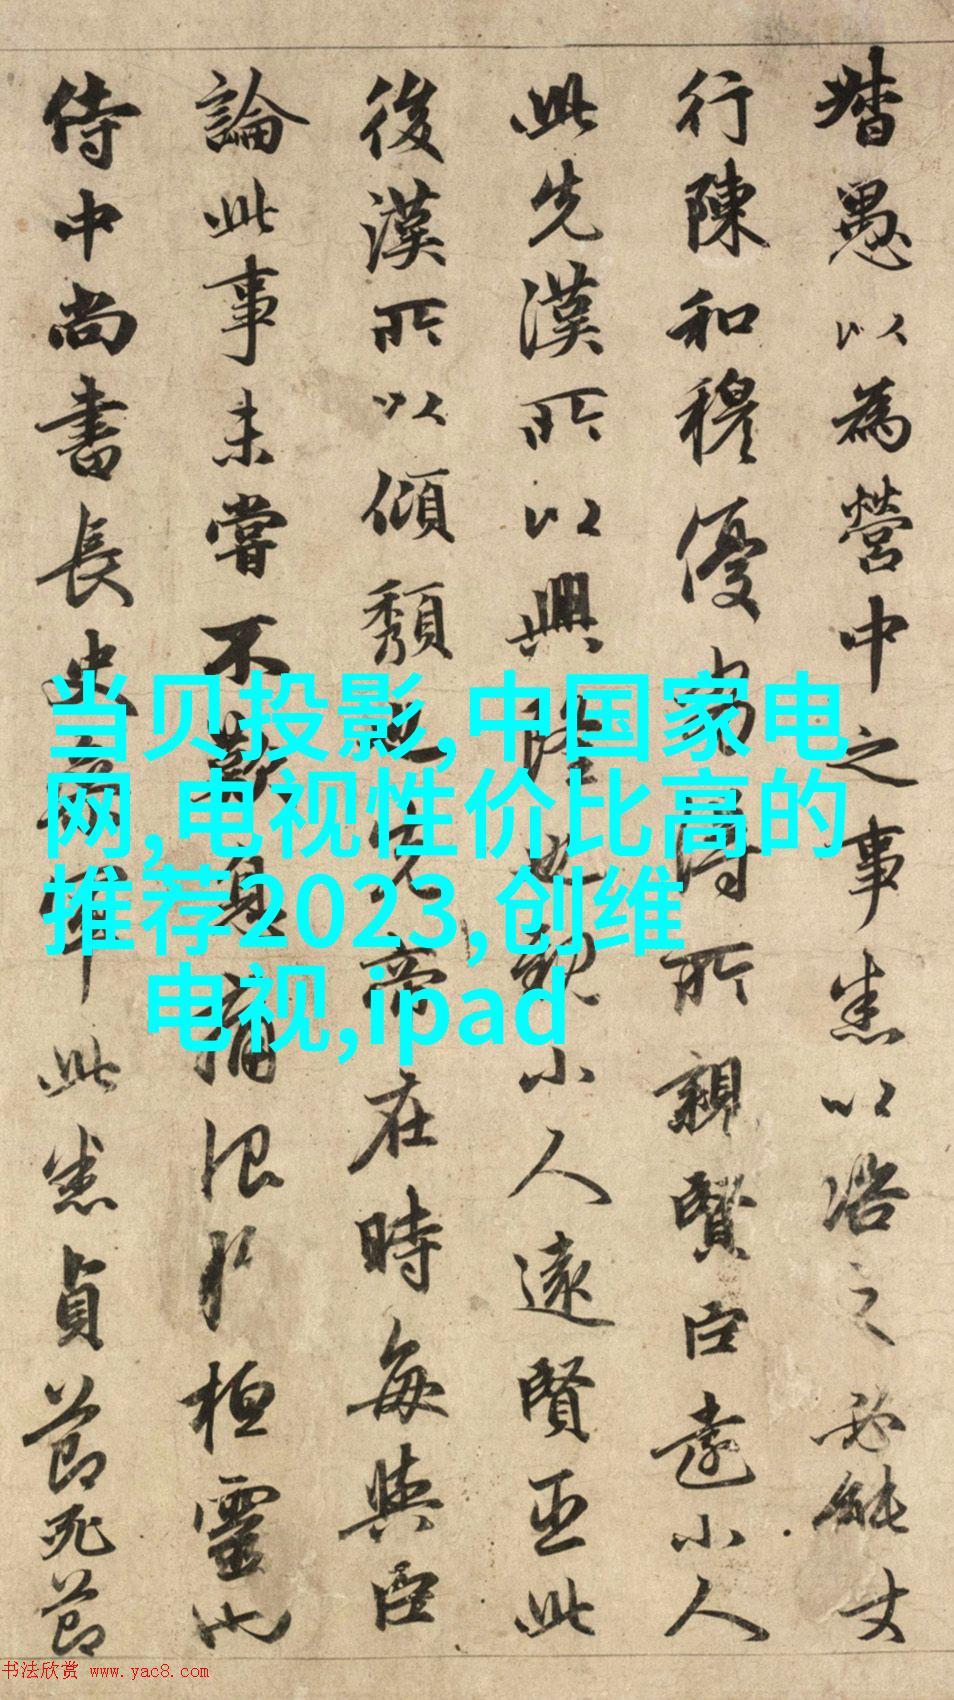 督愚以為營中之事悉以之必能
行陳和穆優劣得所親賢臣遠小人
此先漢所以興隆也親小人遠賢臣此
後漢所以傾頹也先帝在時每與臣
論此事未嘗不歎息痛恨於桓靈也
侍中尚書長史參軍此悉貞節死節
当贝投影,中国家电
网,电视性价比高的
推荐2023,创维
电视,ipad
书法欣赏 www.yac8.com